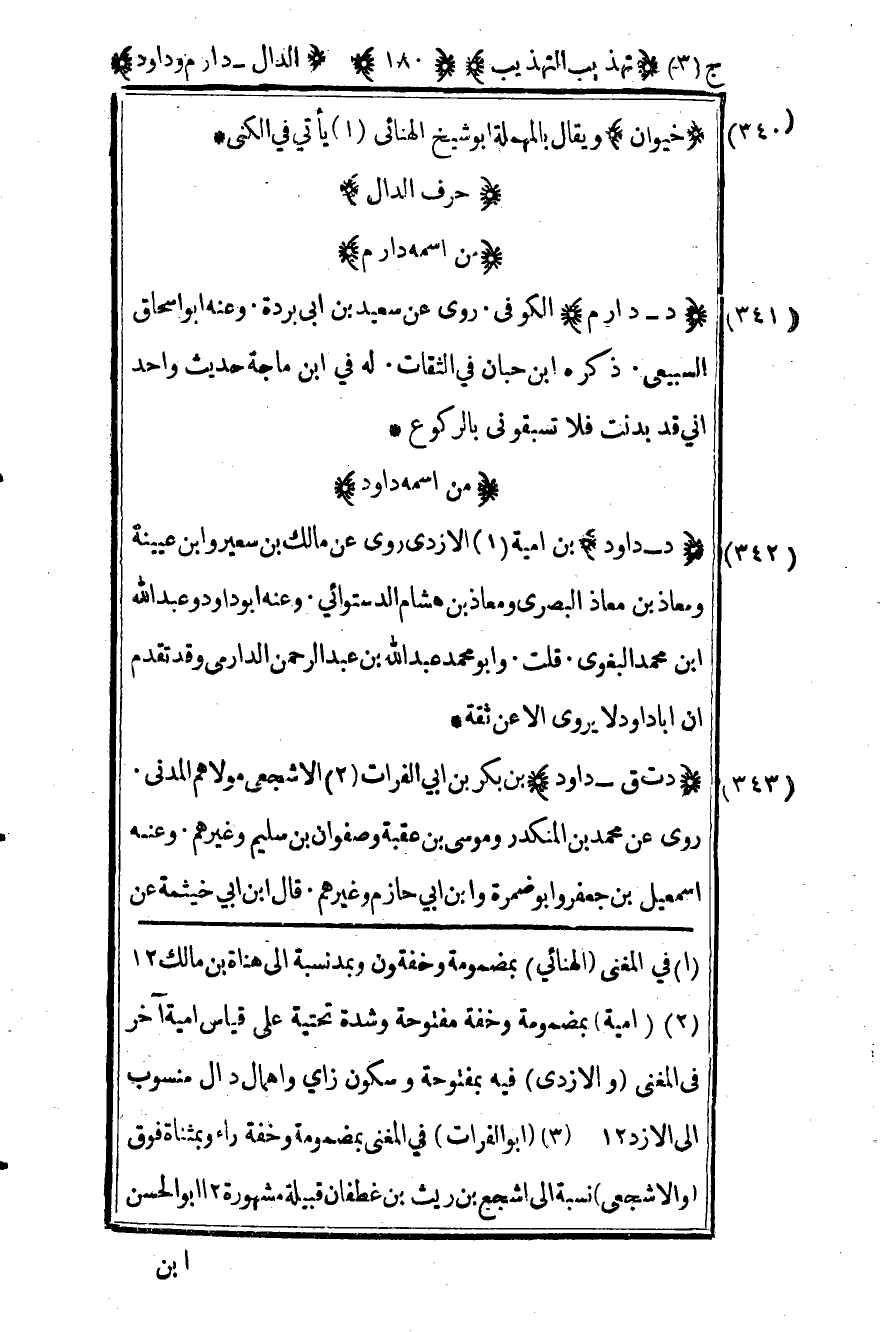 ج (٣) ﴿ تهذيب التهذيب ﴾ ﴿ ١٨٠ ﴾ ﴿ الدال ـ دارم وداود ﴾
(٣٤٠) ﴿ خيوان ﴾ ويقال بالمهملة ابو شيخ الهنائى (١) يأتي في الكنى *
﴿ حرف الدال ﴾
﴿ من اسمه دارم ﴾
(٣٤١) ﴿ د ـ دارم ﴾ الكوفى . روى عن سعيد بن ابى بردة . وعنه ابو اسحاق
السبيعى . ذكره ابن حبان في الثقات . له في ابن ماجة حديث واحد
اني قد بدنت فلا تسبقونى بالركوع *
﴿ من اسمه داود ﴾
(٣٤٢) ﴿ د ـ داود ﴾ بن امية (١) الازدى روى عن مالك بن سعير وابن عيينة
ومعاذ بن معاذ البصرى ومعاذ بن هشام الدستوائي . وعنه ابو داود وعبد الله
ابن محمد البغوى . قلت . وابو محمد عبد الله بن عبد الرحمن الدارمى وقد تقدم
ان اباداود لا يروى الا عن ثقة *
(٣٤٣) ﴿ د ت ق ـ داود ﴾ بن بكر بن ابي الفرات (٢) الاشجعى مولاهم المدنى .
روى عن محمد بن المنكدر وموسى بن عقبة وصفوان بن سليم وغيرهم . وعنه
اسمعيل بن جعفر وابو ضمرة وابن ابي حازم وغيرهم . قال ابن ابي خيثمة عن
(١) في المغنى (الهنائي) بمضمومة وخفة ون وبمد نسبة الى هناة بن مالك ١٢
(٢) (امية) بمضمومة وخفة مفتوحة وشدة تحتية على قياس امية آخر
فى المغنى (والازدى) فيه بمفتوحة وسكون زاي واهمال دال منسوب
الى الازد ١٢ (٣) (ابو الفرات) في المغنى بمضمومة وخفة راء وبمثناة فوق
(والاشجعى) نسبة الى اشجع بن ريث بن غطفان قبيلة مشهورة ١٢ ابو الحسن
ابن